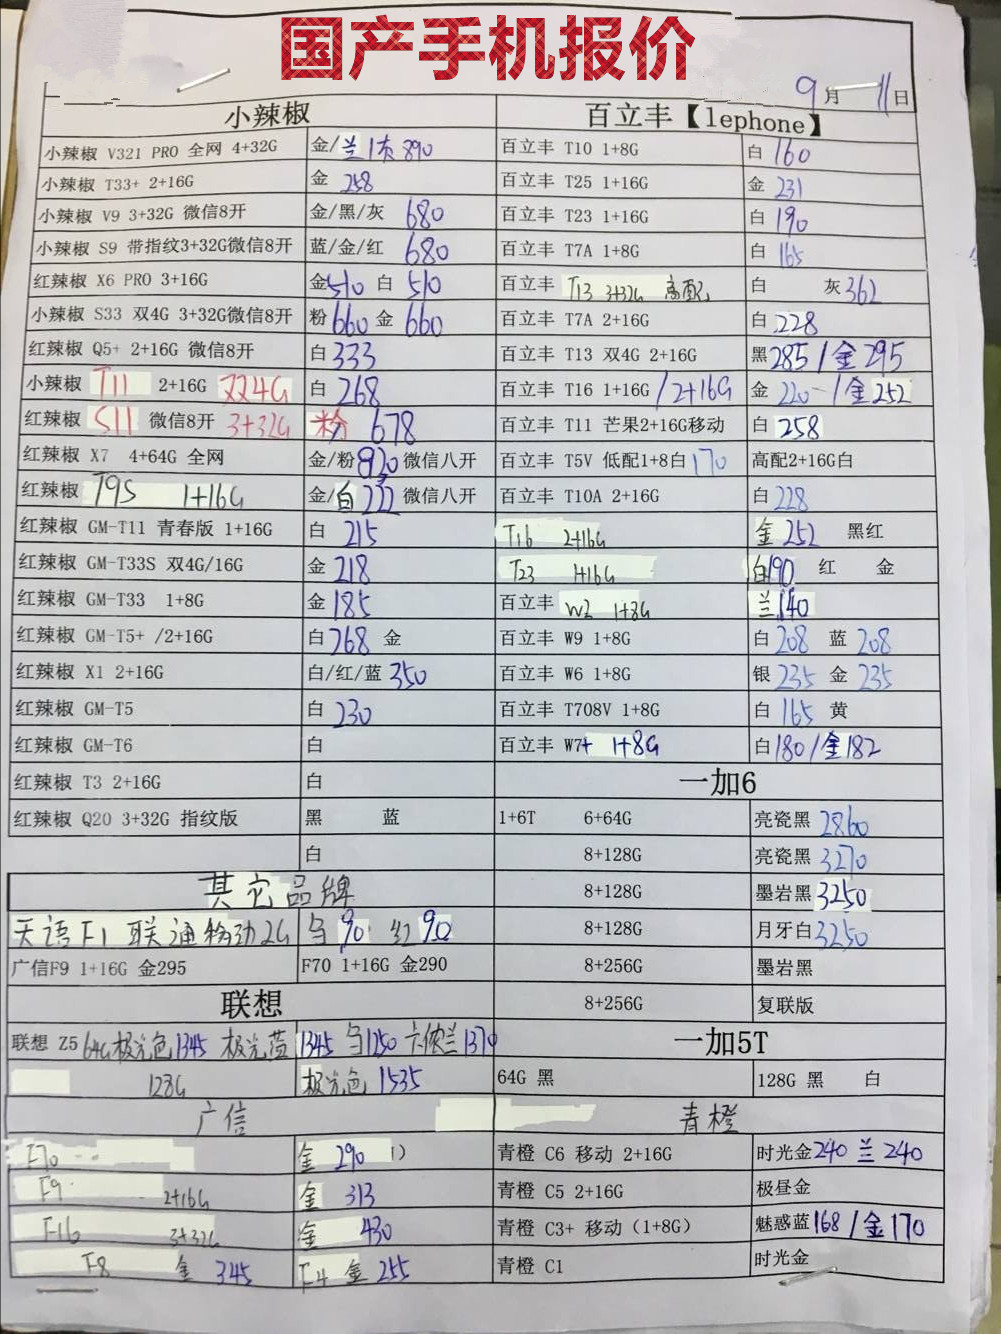 国产手机报价
9月11日
小辣椒
百立丰【lephone】
小辣椒 V321 PRO 全网 4+32G 金/兰/灰 890
百立丰 T10 1+8G 白 160
小辣椒 T33+ 2+16G 金 258
百立丰 T25 1+16G 金 231
小辣椒 V9 3+32G 微信8开 金/黑/灰 680
百立丰 T23 1+16G 白 190
小辣椒 S9 带指纹3+32G微信8开 蓝/金/红 680
百立丰 T7A 1+8G 白 165
红辣椒 X6 PRO 3+16G 金510 白 510
百立丰 T13 3+32G 高配 白 灰362
小辣椒 S33 双4G 3+32G微信8开 粉 660 金 660
百立丰 T7A 2+16G 白 228
红辣椒 Q5+ 2+16G 微信8开 白 333
百立丰 T13 双4G 2+16G 黑285/金295
小辣椒 T11 2+16G 双4G 白 268
百立丰 T16 1+16G/2+16G 金 220-/金252
红辣椒 S11 微信8开 3+32G 粉 678
百立丰 T11 芒果2+16G移动 白 258
红辣椒 X7 4+64G 全网 金/粉920 微信八开
百立丰 T5V 低配1+8白170 高配2+16G白
红辣椒 T9S 1+16G 金/白222 微信八开
百立丰 T10A 2+16G 白 228
红辣椒 GM-T11 青春版 1+16G 白 215
T16 2+16G 金 252 黑红
红辣椒 GM-T33S 双4G/16G 金 218
T23 1+16G 白190 红 金
红辣椒 GM-T33 1+8G 金 185
百立丰 W2 1+8G 兰140
红辣椒 GM-T5+ /2+16G 白268 金
百立丰 W9 1+8G 白 208 蓝 208
红辣椒 X1 2+16G 白/红/蓝 350
百立丰 W6 1+8G 银 235 金 235
红辣椒 GM-T5 白 230
百立丰 T708V 1+8G 白 165 黄
红辣椒 GM-T6 白
百立丰 W7+ 1+8G 白180/金182
红辣椒 T3 2+16G 白
一加6
红辣椒 Q20 3+32G 指纹版 黑 蓝
1+6T 6+64G 亮瓷黑 2860
白
8+128G 亮瓷黑 3270
其它品牌
8+128G 墨岩黑 3250
天语F1 联通移动2G 乌 90 红 90
8+128G 月牙白3250
广信F9 1+16G 金295 F70 1+16G 金290
8+256G 墨岩黑
联想
8+256G 复联版
联想 Z5 64G极光色1345 极光蓝1345 乌1250 卡侬兰1370
一加5T
128G 极光色 1535
64G 黑 128G 黑 白
广信
青橙
F70 金 290
青橙 C6 移动 2+16G 时光金240 兰 240
F9 2+16G 金 313
青橙 C5 2+16G 极昼金
F16 3+32G 金 430
青橙 C3+ 移动（1+8G） 魅惑蓝168/金170
F8 金 345 F4 金 255
青橙 C1 时光金